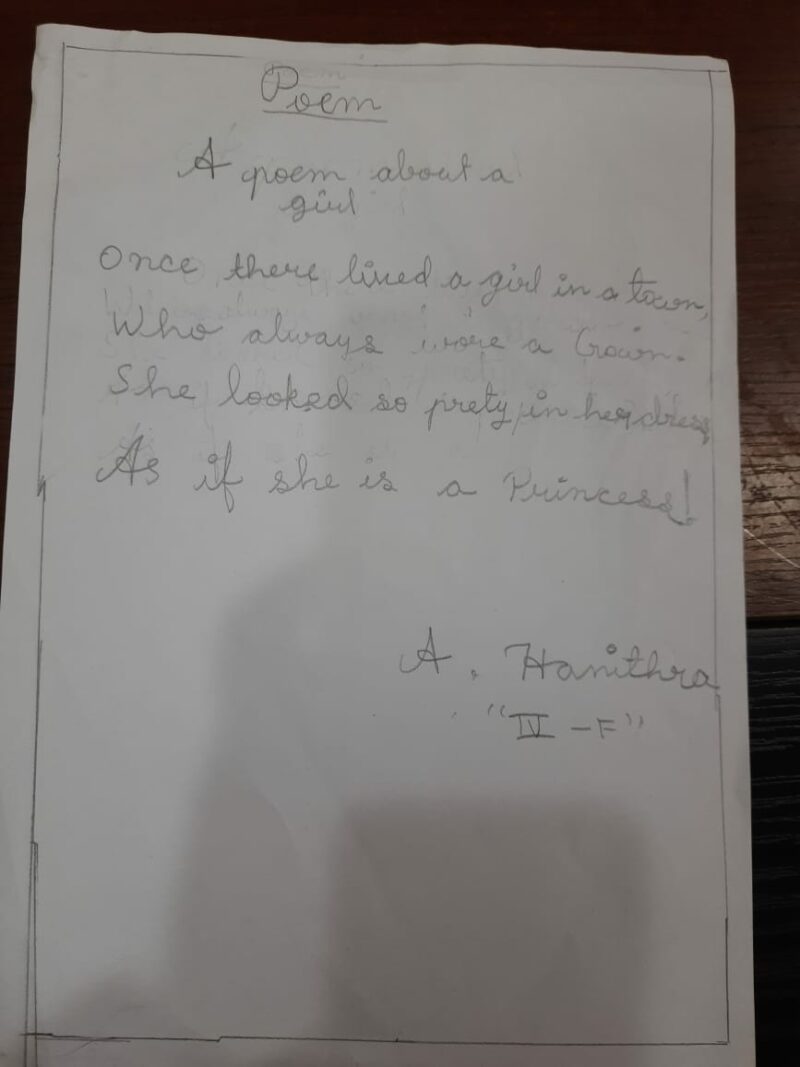 Poem
A poem about a
girl
Once there lived a girl in a town,
Who always wore a Crown.
She looked so prety in her dress,
As if she is a Princess!
A. Hanithra
"IV - F"